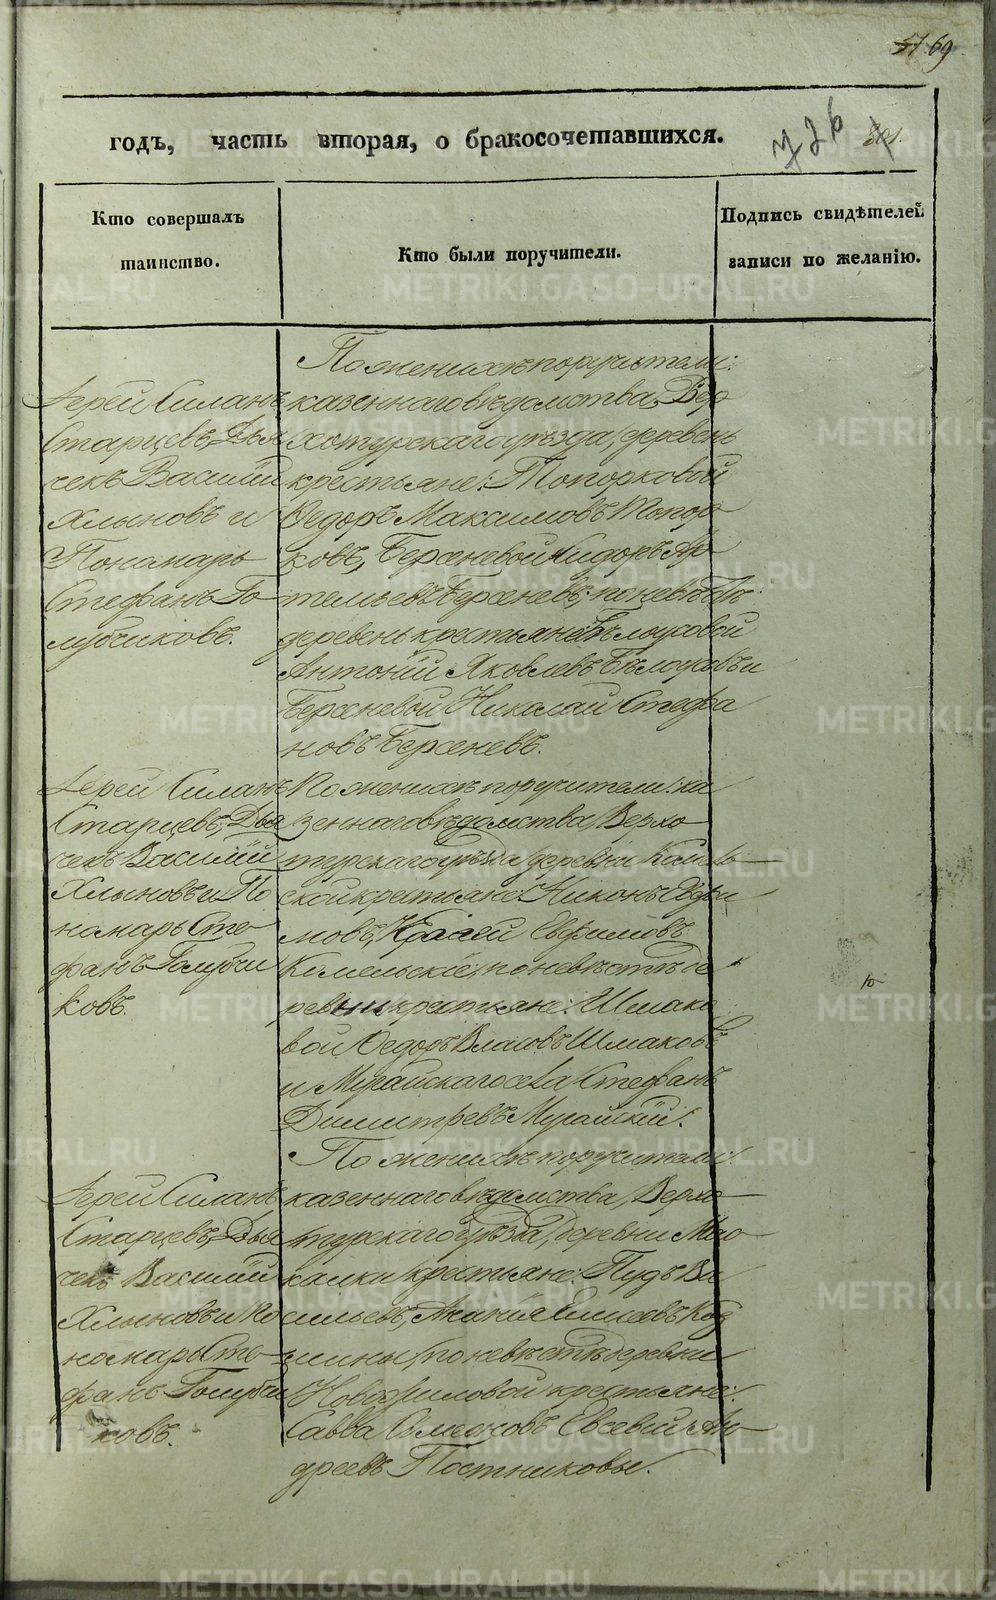 69
годъ, часть вторая, о бракосочетавшихся.
726
Кто совершалъ
таинство.
Кто были поручители.
Подпись свидѣтелей
записи по желанію.
Іерей Силанъ
Старцевъ, Дья
чекъ Василій
Хлыновъ и
Пономарь
Стефанъ Го
лубчиковъ.
По женихѣ поручители:
казеннаго вѣдомства, Вер
хотурскаго уѣзда, деревень
крестьяне: Топорковой
Ѳедоръ Максимовъ Топор
ковъ, Берсеневой Сидоръ Ар
темьевъ Берсеневъ; по невѣстѣ:
деревень крестьяне Бѣлоусовой
Антоній Яковлевъ Бѣлоусовъ и
Берсеневой Николай Стефа
новъ Берсеневъ.
Іерей Силанъ
Старцевъ, Дья
чекъ Василій
Хлыновъ и По
номарь Сте
фанъ Голубчи
ковъ.
По женихѣ поручители: ка
зеннаго вѣдомства, Верхо
турскаго уѣзда деревни Камель
ской крестьяне: Никонъ Евфи
мовъ, Евфимовъ
Камельскіе; по невѣстѣ де
ревни крестьяне: Шмако
вой Ѳедоръ Власовъ Шмаковъ
и Мугайскаго села Стефанъ
Димитревъ Мугайскій.
Іерей Силанъ
Старцевъ, Дья
чекъ Василій
Хлыновъ и По
номарь Сте
фанъ Голубчи
ковъ.
По женихѣ поручители:
казеннаго вѣдомства, Верхо
турскаго уѣзда, деревни Мо
калки крестьяне: Пудъ Ва
сильевъ, Елисеевъ Код
чины; по невѣстѣ деревни
крестьяне:
Савва Симеоновъ Евсевій Ан
дреевъ Постниковы.
METRIKI.GASO-URAL.RU